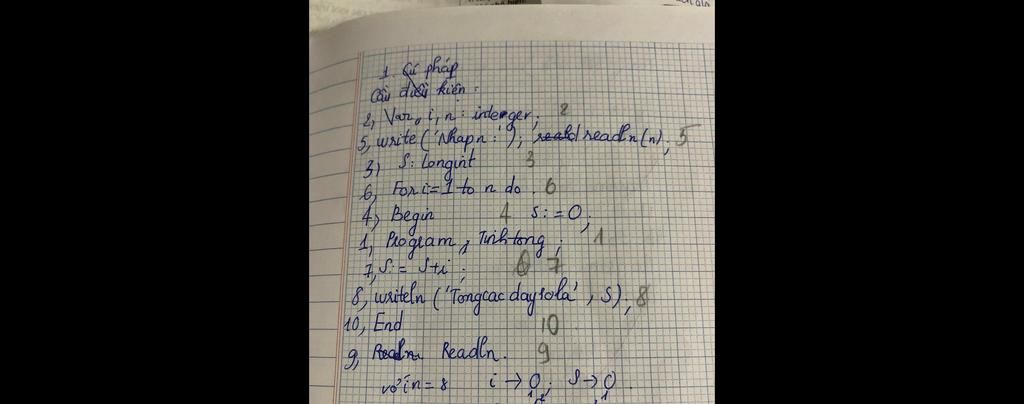 1. Cú pháp
Câu điều kiện :
2, Var, i, n : interger; 2
5, write ('Nhap n :'); readln(n); 5
3) S: Longint 3
6, For i = 1 to n do . 6
4, Begin 4 S: = 0;
1, Program , Tinhtong ; 1
7, S: = S+i ; 7
8, writeln ('Tongcac daysola' , S); 8
10, End 10
9, Readln. 9
với n = 8 i → 0; S → 0